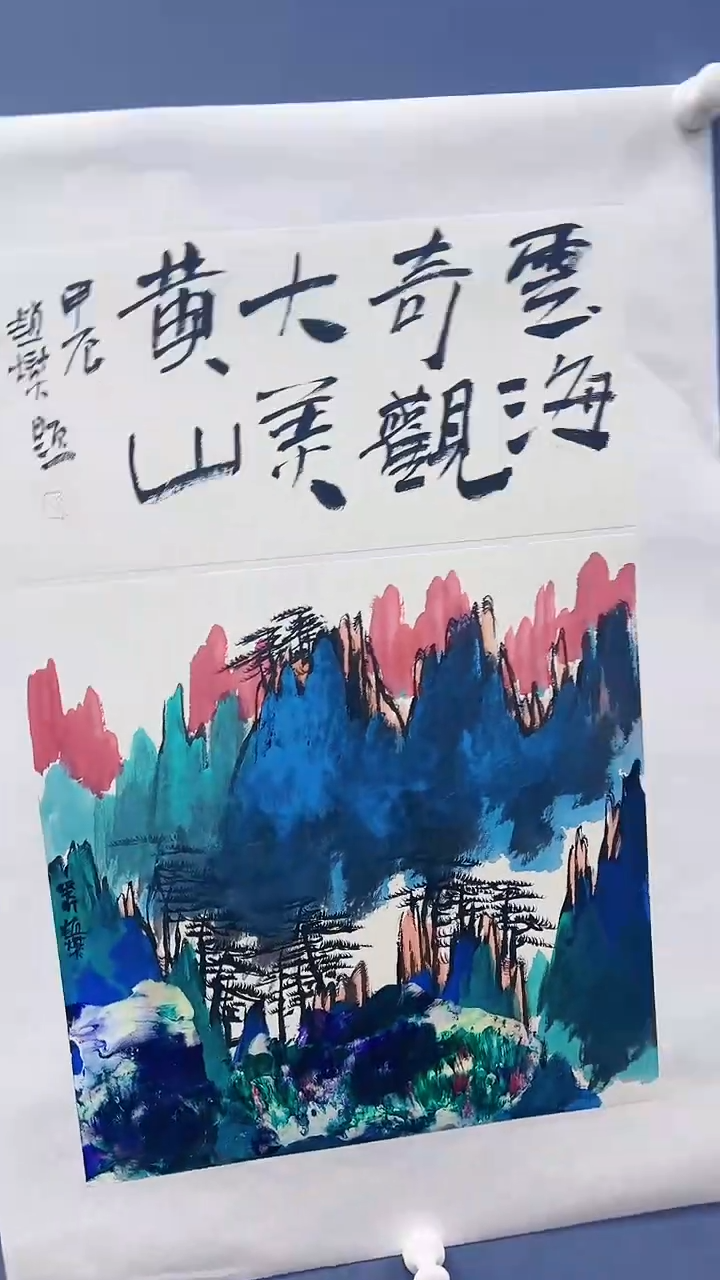 雲海
奇觀
大美
黄山
甲辰
趙樑題